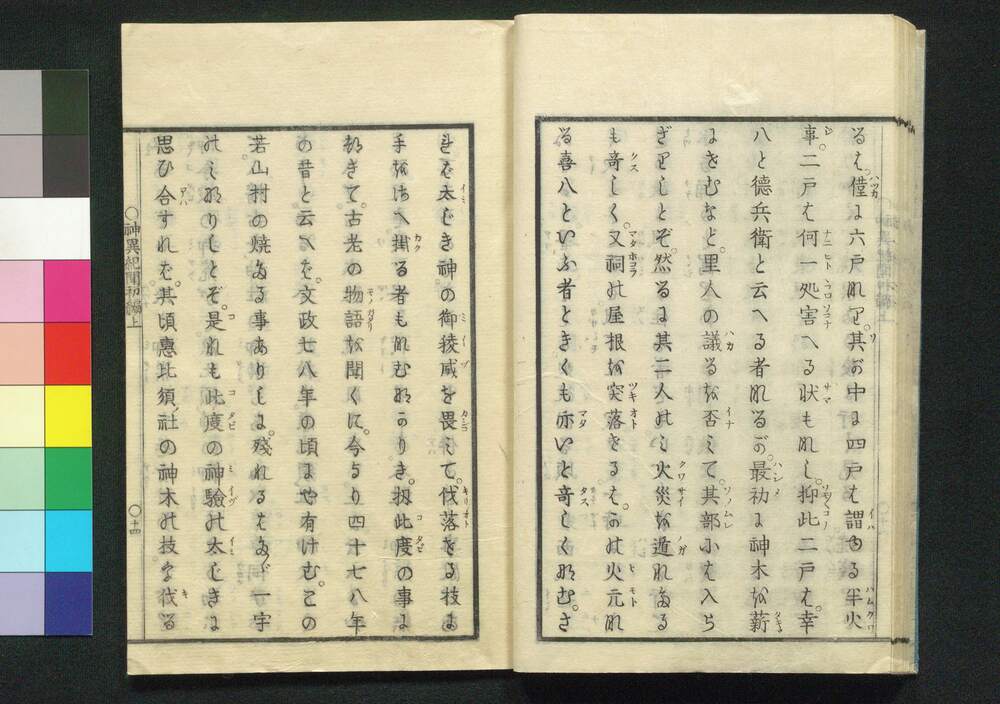 るは。僅に六戸なり。其が中に四戸は謂ゆる半火
事。二戸は何一処害へる状もなし。抑此二戸は。幸
八と徳兵衛と云へる者なるが。最初に神木を薪
にきむなど。里人の議るを否みて。其部には入ら
ざりしとぞ。然るに其二人のみ火災を遁れたる
も奇しく。又祠の屋根を突落せるは。かの火元な
る喜八といふ者ときくも亦いと奇しくなむ。さ
れば太じき神の御稜威を畏みて。伐落せる技に
手をだへ掛る者もなむなかりき。扨此度の事に
驚きて。古老の物語を聞くに。今より四十七八年
の昔と云へば。文政七八年の頃にや有けむ。この
若山村の焼たる事ありしに。残れるはたゞ一宇
のみなりしとぞ。是れも此度の神験の太じきに
思ひ合すれば。其頃恵比須社の神木の技を伐る
〇神異紀聞初編上
〇十四